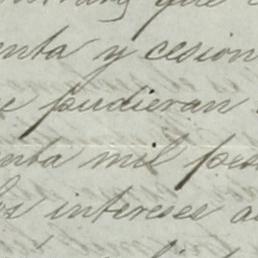 que
enta y cesion
e pudieran
enta mil pes
los intereses a